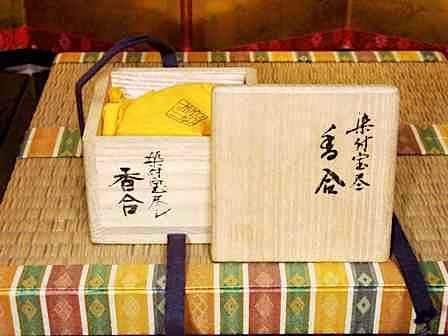 染付宝尽し
香合
染付宝尽
香合